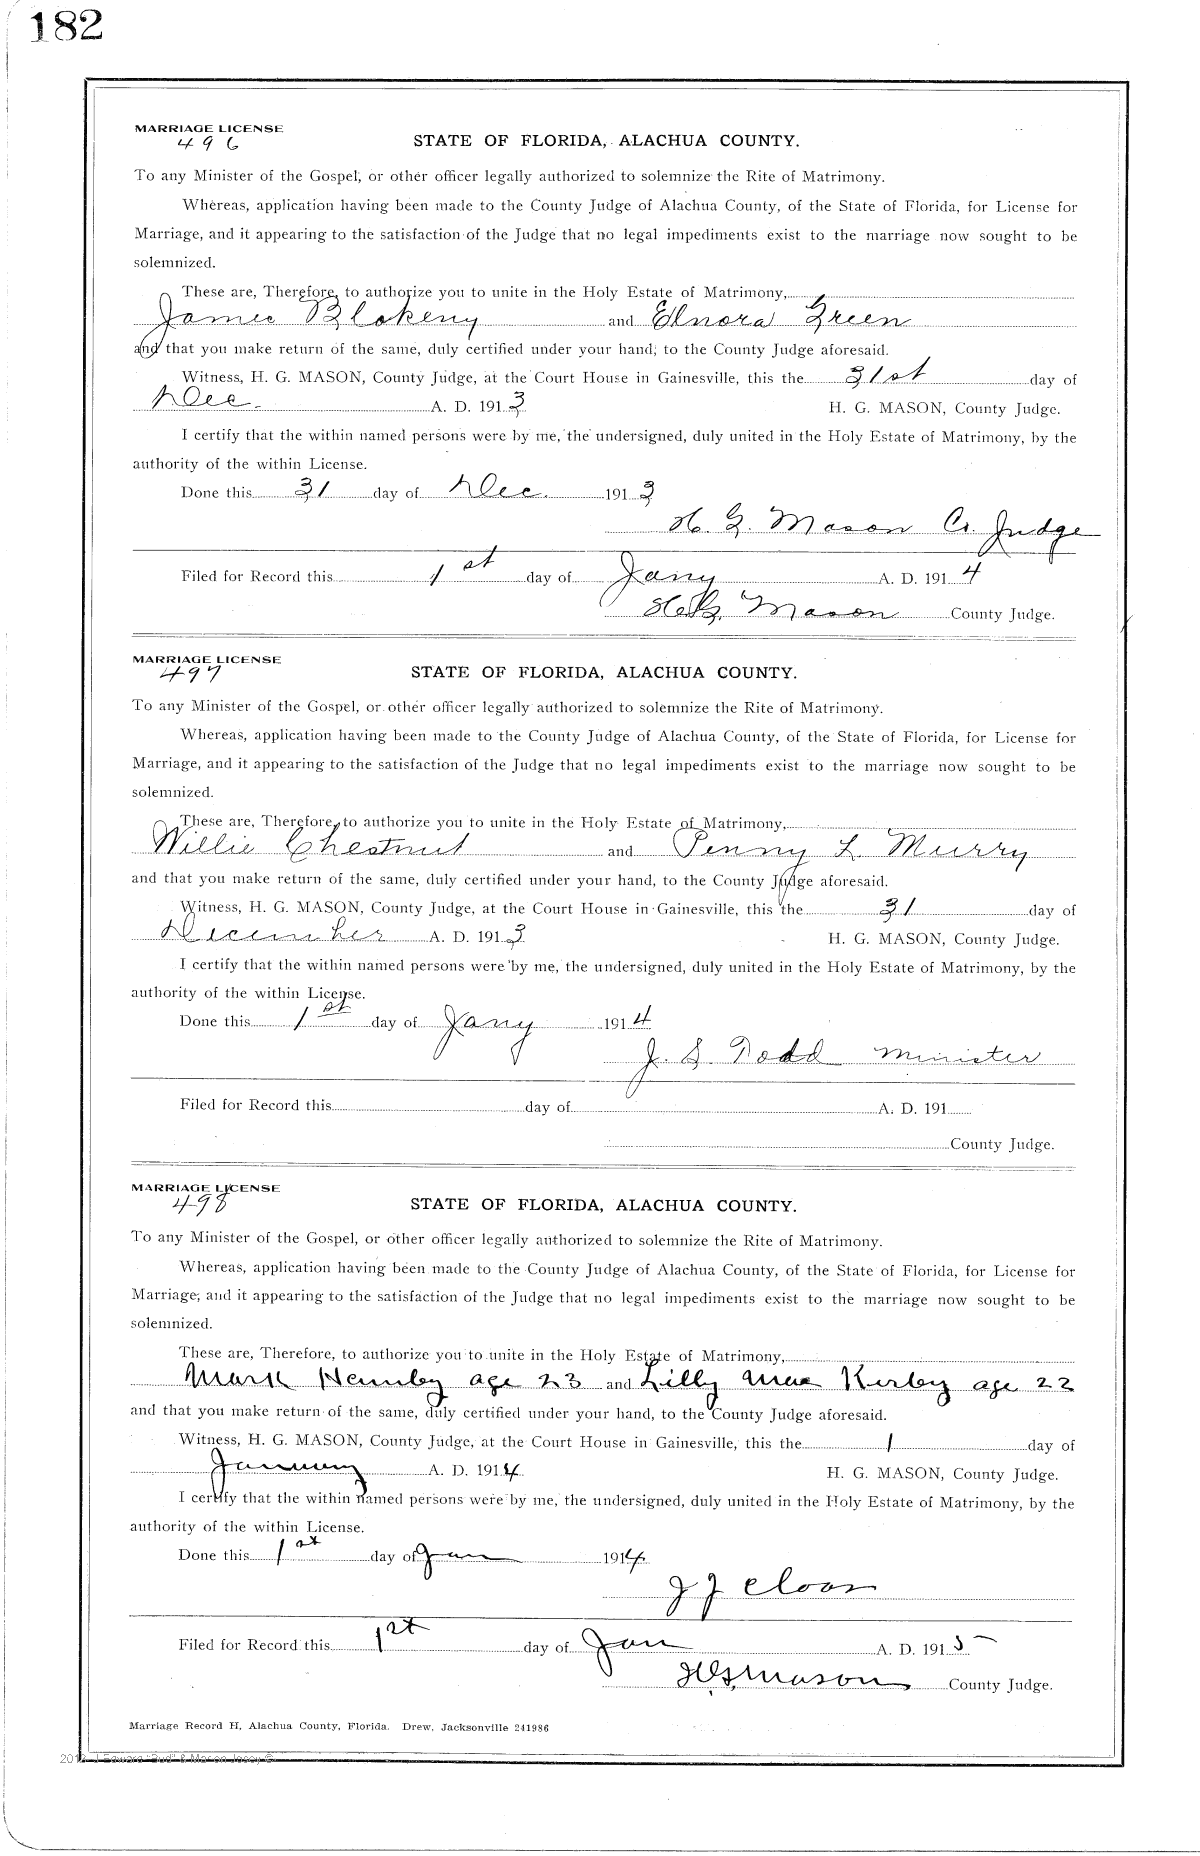 182
MARRIAGE LICENSE
496
STATE OF FLORIDA, ALACHUA COUNTY.
To any Minister of the Gospel, or other officer legally authorized to solemnize the Rite of Matrimony.
Whereas, application having been made to the County Judge of Alachua County, of the State of Florida, for License for
Marriage, and it appearing to the satisfaction of the Judge that no legal impediments exist to the marriage now sought to be
solemnized.
These are, Therefore, to authorize you to unite in the Holy Estate of Matrimony,
James Blakeny and Elnora Green
and that you make return of the same, duly certified under your hand, to the County Judge aforesaid.
Witness, H. G. MASON, County Judge, at the Court House in Gainesville, this the 31st day of
Dec. A. D. 1913 H. G. MASON, County Judge.
I certify that the within named persons were by me, the undersigned, duly united in the Holy Estate of Matrimony, by the
authority of the within License.
Done this 31 day of Dec. 1913
H. G. Mason Co. Judge
Filed for Record this 1st day of Jany A. D. 1914
H. G. Mason County Judge.
MARRIAGE LICENSE
497
STATE OF FLORIDA, ALACHUA COUNTY.
To any Minister of the Gospel, or other officer legally authorized to solemnize the Rite of Matrimony.
Whereas, application having been made to the County Judge of Alachua County, of the State of Florida, for License for
Marriage, and it appearing to the satisfaction of the Judge that no legal impediments exist to the marriage now sought to be
solemnized.
These are, Therefore, to authorize you to unite in the Holy Estate of Matrimony,
Willie Chestnut and Penny L. Murry
and that you make return of the same, duly certified under your hand, to the County Judge aforesaid.
Witness, H. G. MASON, County Judge, at the Court House in Gainesville, this the 31 day of
December A. D. 1913 H. G. MASON, County Judge.
I certify that the within named persons were by me, the undersigned, duly united in the Holy Estate of Matrimony, by the
authority of the within License.
Done this 1st day of Jany 1914
J. S. Todd Minister
Filed for Record this day of A. D. 191
County Judge.
MARRIAGE LICENSE
498
STATE OF FLORIDA, ALACHUA COUNTY.
To any Minister of the Gospel, or other officer legally authorized to solemnize the Rite of Matrimony.
Whereas, application having been made to the County Judge of Alachua County, of the State of Florida, for License for
Marriage, and it appearing to the satisfaction of the Judge that no legal impediments exist to the marriage now sought to be
solemnized.
These are, Therefore, to authorize you to unite in the Holy Estate of Matrimony,
Mark age 23 and Lilly Mae Kirby age 22
and that you make return of the same, duly certified under your hand, to the County Judge aforesaid.
Witness, H. G. MASON, County Judge, at the Court House in Gainesville, this the 1 day of
January A. D. 1914 H. G. MASON, County Judge.
I certify that the within named persons were by me, the undersigned, duly united in the Holy Estate of Matrimony, by the
authority of the within License.
Done this 1st day of Jan 1914
J J
Filed for Record this 1st day of Jan A. D. 1915
H. G. Mason County Judge.
Marriage Record H, Alachua County, Florida. Drew, Jacksonville 241986